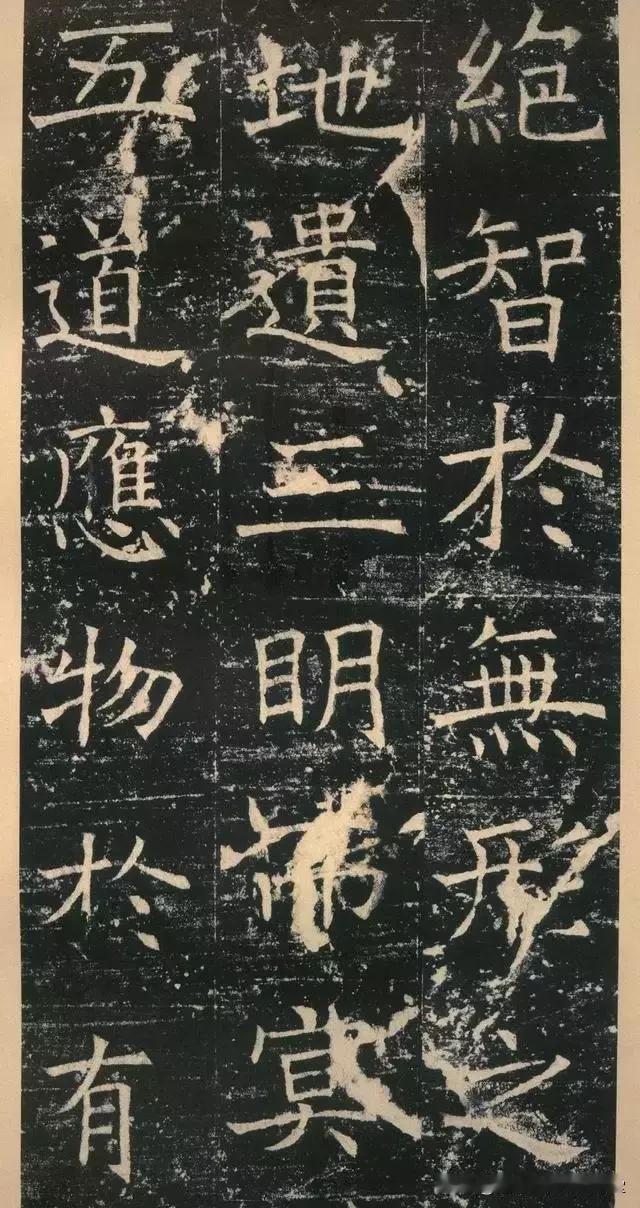 絕智於無形之
地遺三明冥
五道應物於有